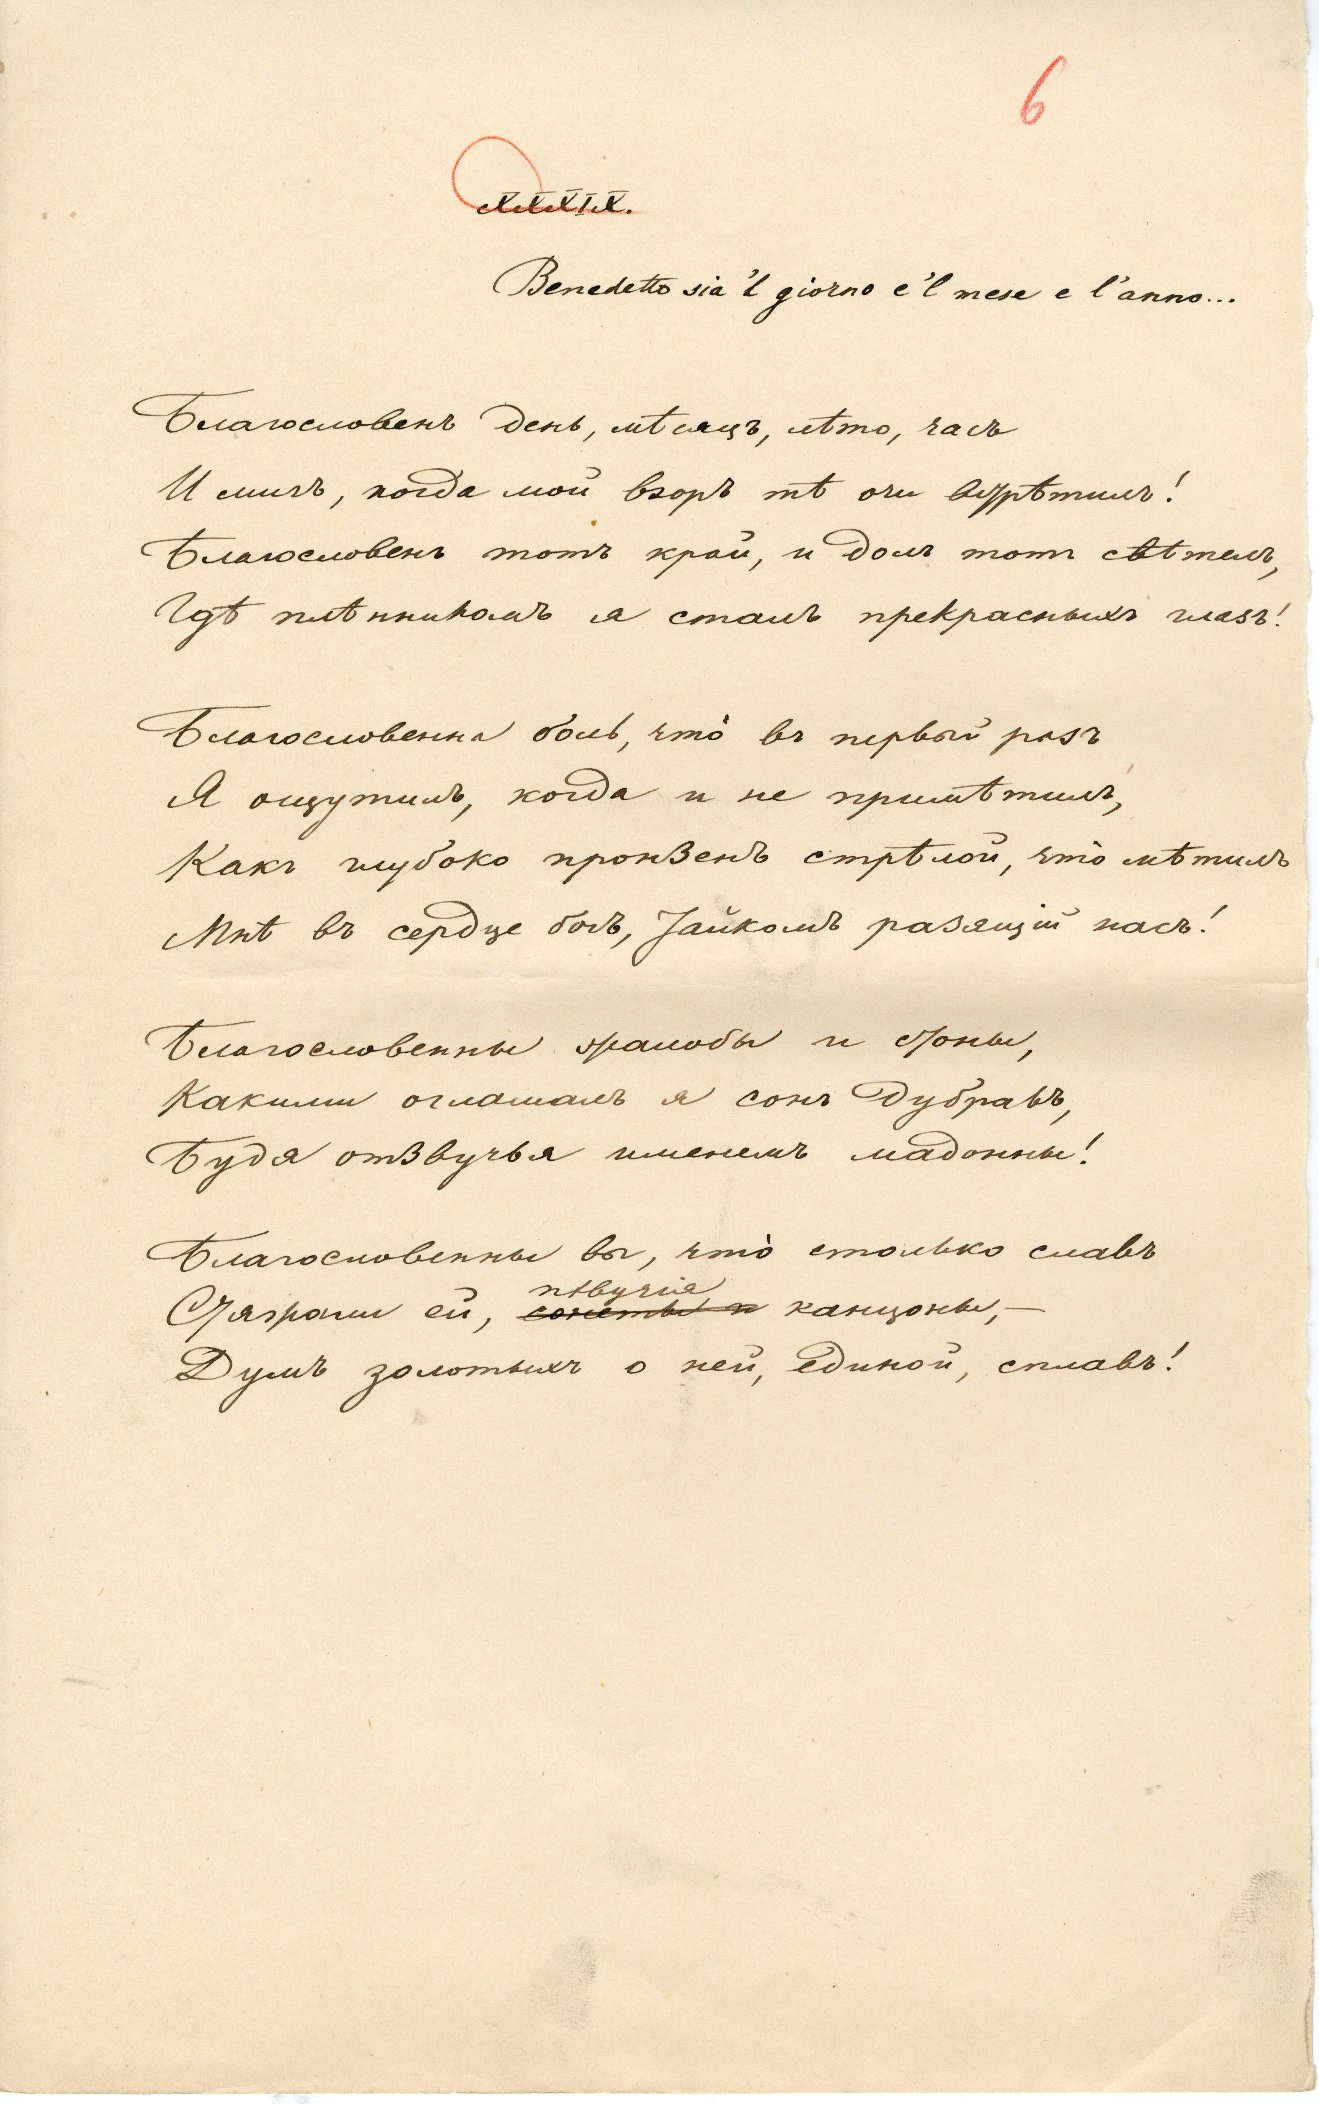 6
XXXIX.
Benedetto sia 'l giorno e 'l mese e l'anno...
Благословенъ день, мѣсяцъ, лѣто, часъ
И мигъ, когда мой взоръ тѣ очи встрѣтилъ!
Благословенъ тотъ край, и долъ тотъ свѣтелъ,
Гдѣ плѣнникомъ я сталъ прекрасныхъ глазъ!
Благословенна боль, что̀ въ первый разъ
Я ощутилъ, когда и не примѣтилъ,
Какъ глубоко пронзенъ стрѣлой, что̀ мѣтилъ
Мнѣ въ сердце богъ, тайкомъ разящій насъ!
Благословенны жалобы и стоны,
Какими оглашалъ я сонъ дубравъ,
Будя отзвучья именемъ мадонны!
Благословенны вы, что̀ столько славъ
пѣвучія
Стяжали ей, сонеты и канцоны,—
Думъ золотыхъ о ней, единой, сплавъ!